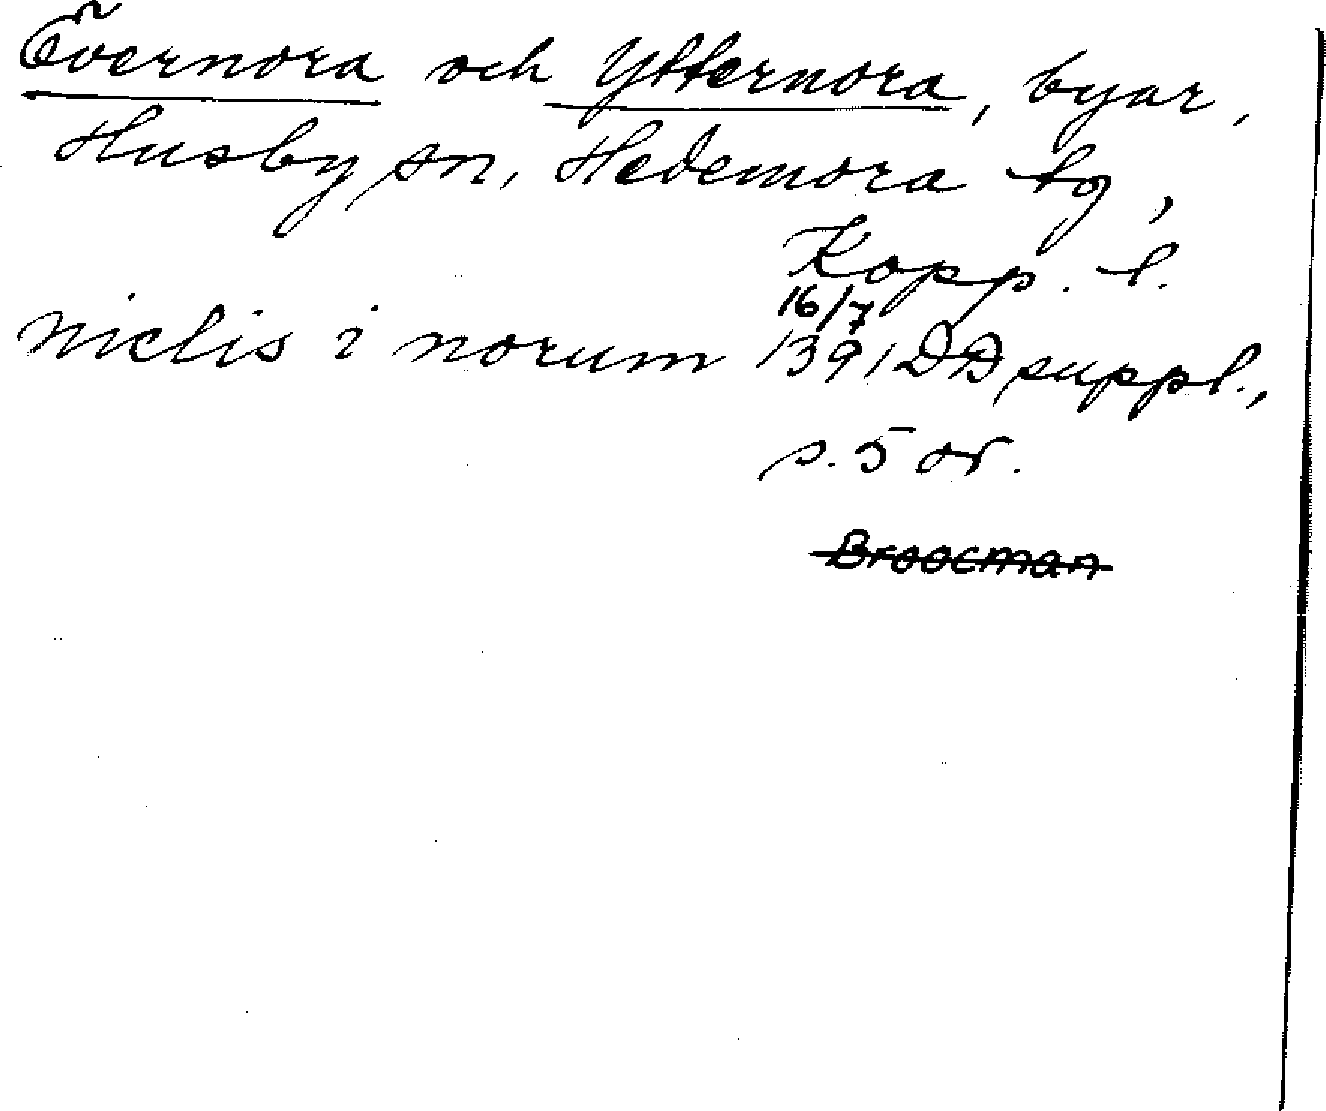 Övernora och Ytternora, byar,
Husby sn, Hedemora tg,
Kopp. l.
16/7
niclis i norum 1391 DD suppl.,
s. 5 or.
Broocman